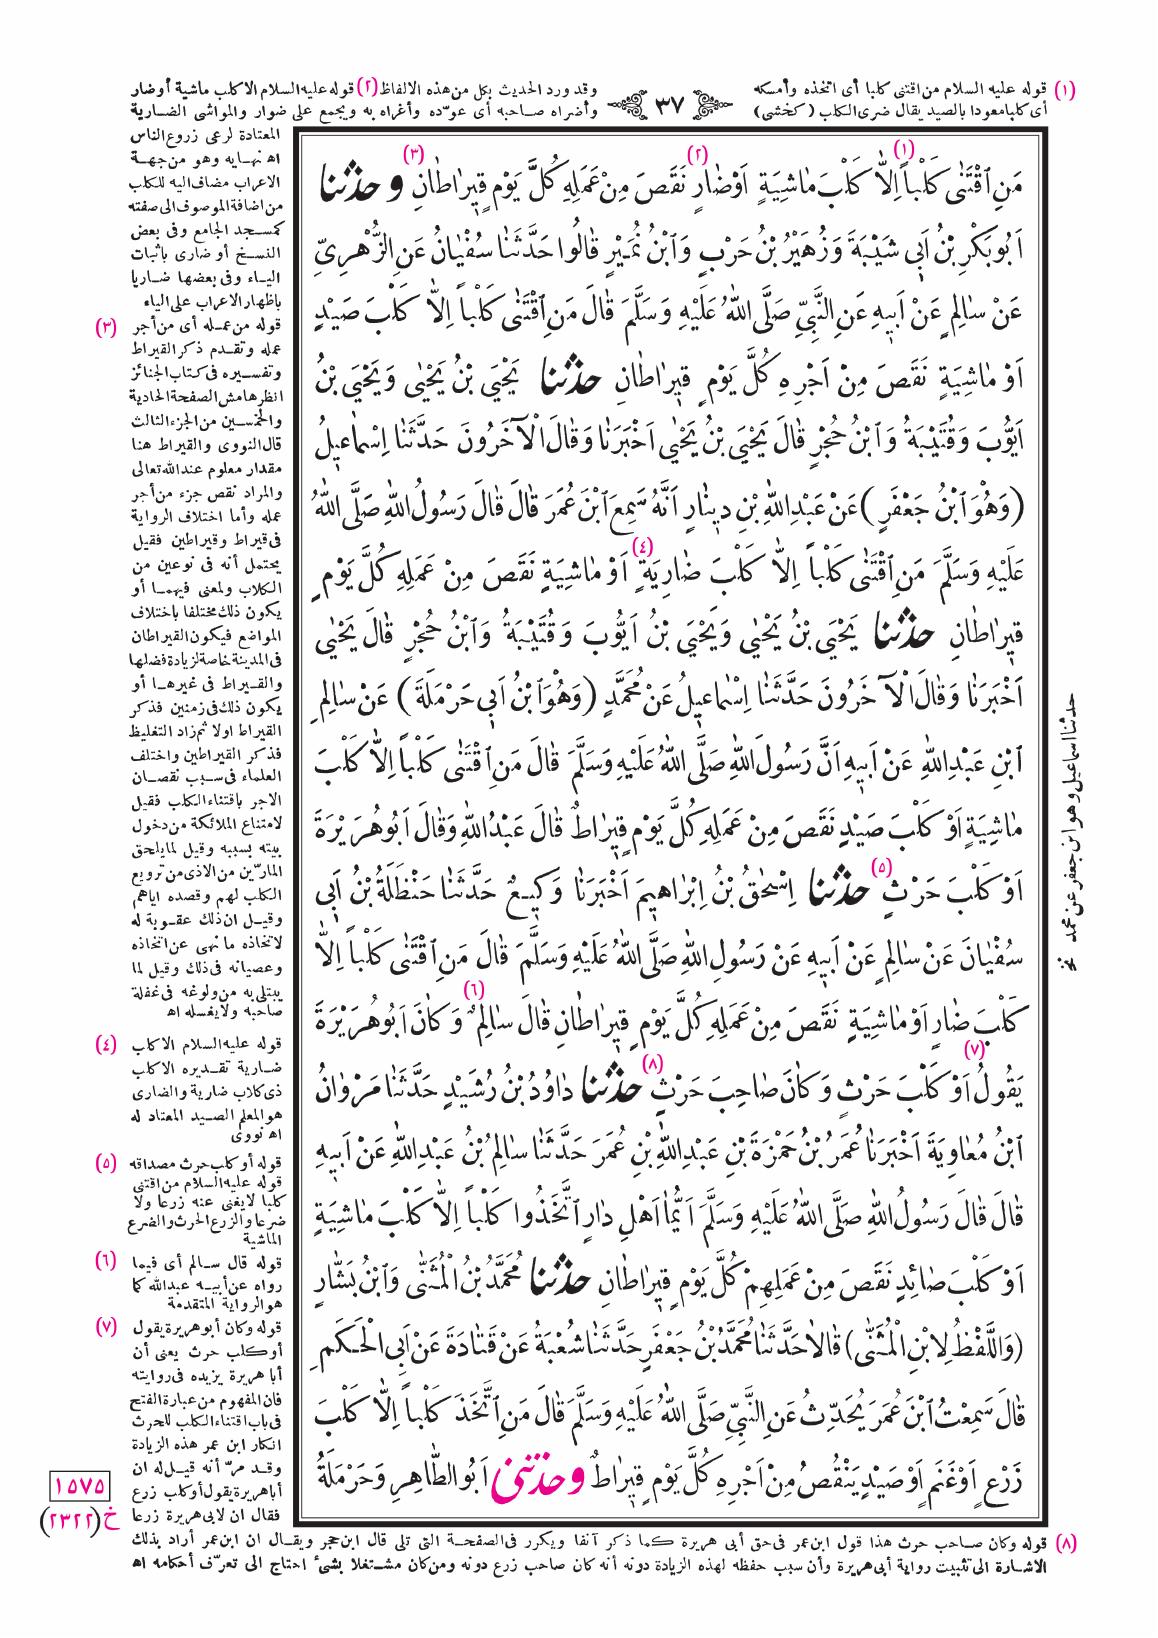 (١) قوله عليه السلام من اقتنى كلبا أى اتخذه وأمسكه
أى كلبا معودا بالصيد يقال ضرى الكلب (كخشى)
٣٧
وقد ورد الحديث بكل من هذه الالفاظ (٢) قوله عليه السلام الا كلب ماشية أو ضار
وأضراه صاحبه أى عوّده وأغراه به ويجمع على ضوار والمواشى الضارية
المعتادة لرعى زروع الناس
اه نهايه وهو من جهة
الاعراب مضاف اليه للكلب
من اضافة الموصوف الى صفته
كمسجد الجامع وفى بعض
النسخ أو ضارى باثبات
الياء وفى بعضها ضاريا
باظهار الاعراب على الياء
(٣) قوله من عمله أى من أجر
عمله وتقدم ذكر القيراط
وتفسيره فى كتاب الجنائز
انظر هامش الصفحة الحادية
والخمسين من الجزء الثالث
قال النووى والقيراط هنا
مقدار معلوم عند الله تعالى
والمراد نقص جزء من أجر
عمله وأما اختلاف الرواية
فى قيراط وقيراطين فقيل
يحتمل أنه فى نوعين من
الكلاب ولمعنى فيهما أو
يكون ذلك مختلفا باختلاف
المواضع فيكون القيراطان
فى المدينة خاصة لزيادة فضلها
والقيراط فى غيرها أو
يكون ذلك فى زمنين فذكر
القيراط اولا ثم زاد التغليظ
فذكر القيراطين واختلف
العلماء فى سبب نقصان
الاجر باقتناء الكلب فقيل
لامتناع الملائكة من دخول
بيته بسببه وقيل لما يلحق
المارّين من الاذى من ترويع
الكلب لهم وقصده اياهم
وقيل ان ذلك عقوبة له
لاتخاذه ما نهى عن اتخاذه
وعصيانه فى ذلك وقيل لما
يبتلى به من ولوغه فى غفلة
صاحبه ولا يغسله اه
(٤) قوله عليه السلام الا كلب
ضارية تقديره الا كلب
ذى كلاب ضارية والضارى
هو المعلم الصيد المعتاد له
اه نووى
(٥) قوله أو كلب حرث مصداقه
قوله عليه السلام من اقتنى
كلبا لا يغنى عنه زرعا ولا
ضرعا والزرع الحرث والضرع
الماشية
(٦) قوله قال سالم أى فيما
رواه عن أبيه عبد الله كما
هو الرواية المتقدمة
(٧) قوله وكان أبو هريرة يقول
أو كلب حرث يعنى أن
أبا هريرة يزيده فى روايته
فان المفهوم من عبارة الفتح
فى باب اقتناء الكلب للحرث
انكار ابن عمر هذه الزيادة
وقد مرّ أنه قيل له ان
أبا هريرة يقول أو كلب زرع
فقال ان لابى هريرة زرعا
مَنِ اقْتَنٰى كَلْباً (١) اِلاّٰ كَلْبَ مٰاشِيَةٍ اَوْ ضٰارٍ (٢) نَقَصَ مِنْ عَمَلِهِ كُلَّ يَوْمٍ قٖيرٰاطٰانِ (٣) وحدثنا
اَبُو بَكْرِ بْنُ اَبٖي شَيْبَةَ وَزُهَيْرُ بْنُ حَرْبٍ وَابْنُ نُمَيْرٍ قٰالُوا حَدَّثَنٰا سُفْيٰانُ عَنِ الزُّهْرِيِّ
عَنْ سٰالِمٍ عَنْ اَبٖيهِ عَنِ النَّبِيِّ صَلَّى اللهُ عَلَيْهِ وَسَلَّمَ قٰالَ مَنِ اقْتَنٰى كَلْباً اِلاّٰ كَلْبَ صَيْدٍ
اَوْ مٰاشِيَةٍ نَقَصَ مِنْ اَجْرِهِ كُلَّ يَوْمٍ قٖيرٰاطٰانِ حدثنا يَحْيَى بْنُ يَحْيٰى وَيَحْيَى بْنُ
اَيُّوبَ وَقُتَيْبَةُ وَابْنُ حُجْرٍ قٰالَ يَحْيَى بْنُ يَحْيٰى اَخْبَرَنٰا وَقٰالَ الْآخَرُونَ حَدَّثَنٰا اِسْمٰاعٖيلُ
(وَهُوَ ابْنُ جَعْفَرٍ) عَنْ عَبْدِ اللهِ بْنِ دٖينٰارٍ اَنَّهُ سَمِعَ ابْنَ عُمَرَ قٰالَ قٰالَ رَسُولُ اللهِ صَلَّى اللهُ
عَلَيْهِ وَسَلَّمَ مَنِ اقْتَنٰى كَلْباً اِلاّٰ كَلْبَ ضٰارِيَةٍ (٤) اَوْ مٰاشِيَةٍ نَقَصَ مِنْ عَمَلِهِ كُلَّ يَوْمٍ
قٖيرٰاطٰانِ حدثنا يَحْيَى بْنُ يَحْيٰى وَيَحْيَى بْنُ اَيُّوبَ وَقُتَيْبَةُ وَابْنُ حُجْرٍ قٰالَ يَحْيٰى
اَخْبَرَنٰا وَقٰالَ الْآخَرُونَ حَدَّثَنٰا اِسْمٰاعٖيلُ عَنْ مُحَمَّدٍ (وَهُوَ ابْنُ اَبٖي حَرْمَلَةَ) عَنْ سٰالِمِ
ابْنِ عَبْدِ اللهِ عَنْ اَبٖيهِ اَنَّ رَسُولَ اللهِ صَلَّى اللهُ عَلَيْهِ وَسَلَّمَ قٰالَ مَنِ اقْتَنٰى كَلْباً اِلاّٰ كَلْبَ
مٰاشِيَةٍ اَوْ كَلْبَ صَيْدٍ نَقَصَ مِنْ عَمَلِهِ كُلَّ يَوْمٍ قٖيرٰاطٌ قٰالَ عَبْدُ اللهِ وَقٰالَ اَبُو هُرَيْرَةَ
اَوْ كَلْبَ حَرْثٍ (٥) حدثنا اِسْحٰقُ بْنُ اِبْرٰاهٖيمَ اَخْبَرَنٰا وَكٖيعٌ حَدَّثَنٰا حَنْظَلَةُ بْنُ اَبٖي
سُفْيٰانَ عَنْ سٰالِمٍ عَنْ اَبٖيهِ عَنْ رَسُولِ اللهِ صَلَّى اللهُ عَلَيْهِ وَسَلَّمَ قٰالَ مَنِ اقْتَنٰى كَلْباً اِلاّٰ
كَلْبَ ضٰارٍ اَوْ مٰاشِيَةٍ نَقَصَ مِنْ عَمَلِهِ كُلَّ يَوْمٍ قٖيرٰاطٰانِ قٰالَ سٰالِمٌ (٦) وَكٰانَ اَبُو هُرَيْرَةَ
يَقُولُ اَوْ كَلْبَ حَرْثٍ (٧) وَكٰانَ صٰاحِبَ حَرْثٍ (٨) حدثنا دٰاوُدُ بْنُ رُشَيْدٍ حَدَّثَنٰا مَرْوٰانُ
ابْنُ مُعٰاوِيَةَ اَخْبَرَنٰا عُمَرُ بْنُ حَمْزَةَ بْنِ عَبْدِ اللهِ بْنِ عُمَرَ حَدَّثَنٰا سٰالِمُ بْنُ عَبْدِ اللهِ عَنْ اَبٖيهِ
قٰالَ قٰالَ رَسُولُ اللهِ صَلَّى اللهُ عَلَيْهِ وَسَلَّمَ اَيُّمٰا اَهْلِ دٰارٍ اتَّخَذُوا كَلْباً اِلاّٰ كَلْبَ مٰاشِيَةٍ
اَوْ كَلْبَ صٰائِدٍ نَقَصَ مِنْ عَمَلِهِمْ كُلَّ يَوْمٍ قٖيرٰاطٰانِ حدثنا مُحَمَّدُ بْنُ الْمُثَنّٰى وَابْنُ بَشّٰارٍ
(وَاللَّفْظُ لِابْنِ الْمُثَنّٰى) قٰالاٰ حَدَّثَنٰا مُحَمَّدُ بْنُ جَعْفَرٍ حَدَّثَنٰا شُعْبَةُ عَنْ قَتٰادَةَ عَنْ اَبِي الْحَكَمِ
قٰالَ سَمِعْتُ ابْنَ عُمَرَ يُحَدِّثُ عَنِ النَّبِيِّ صَلَّى اللهُ عَلَيْهِ وَسَلَّمَ قٰالَ مَنِ اتَّخَذَ كَلْباً اِلاّٰ كَلْبَ
زَرْعٍ اَوْ غَنَمٍ اَوْ صَيْدٍ يَنْقُصُ مِنْ اَجْرِهِ كُلَّ يَوْمٍ قٖيرٰاطٌ وحدثنى اَبُو الطّٰاهِرِ وَحَرْمَلَةُ
حدثنا اسماعيل وهو ابن جعفر عن محمد نخ
١٥٧٥
خ (٢٣٢٢)
(٨) قوله وكان صاحب حرث هذا قول ابن عمر فى حق أبى هريرة كما ذكر آنفا ويكرر فى الصفحة التى تلى قال ابن حجر ويقال ان ابن عمر أراد بذلك
الاشارة الى تثبيت رواية أبى هريرة وأن سبب حفظه لهذه الزيادة دونه أنه كان صاحب زرع دونه ومن كان مشتغلا بشىء احتاج الى تعرّف أحكامه اه